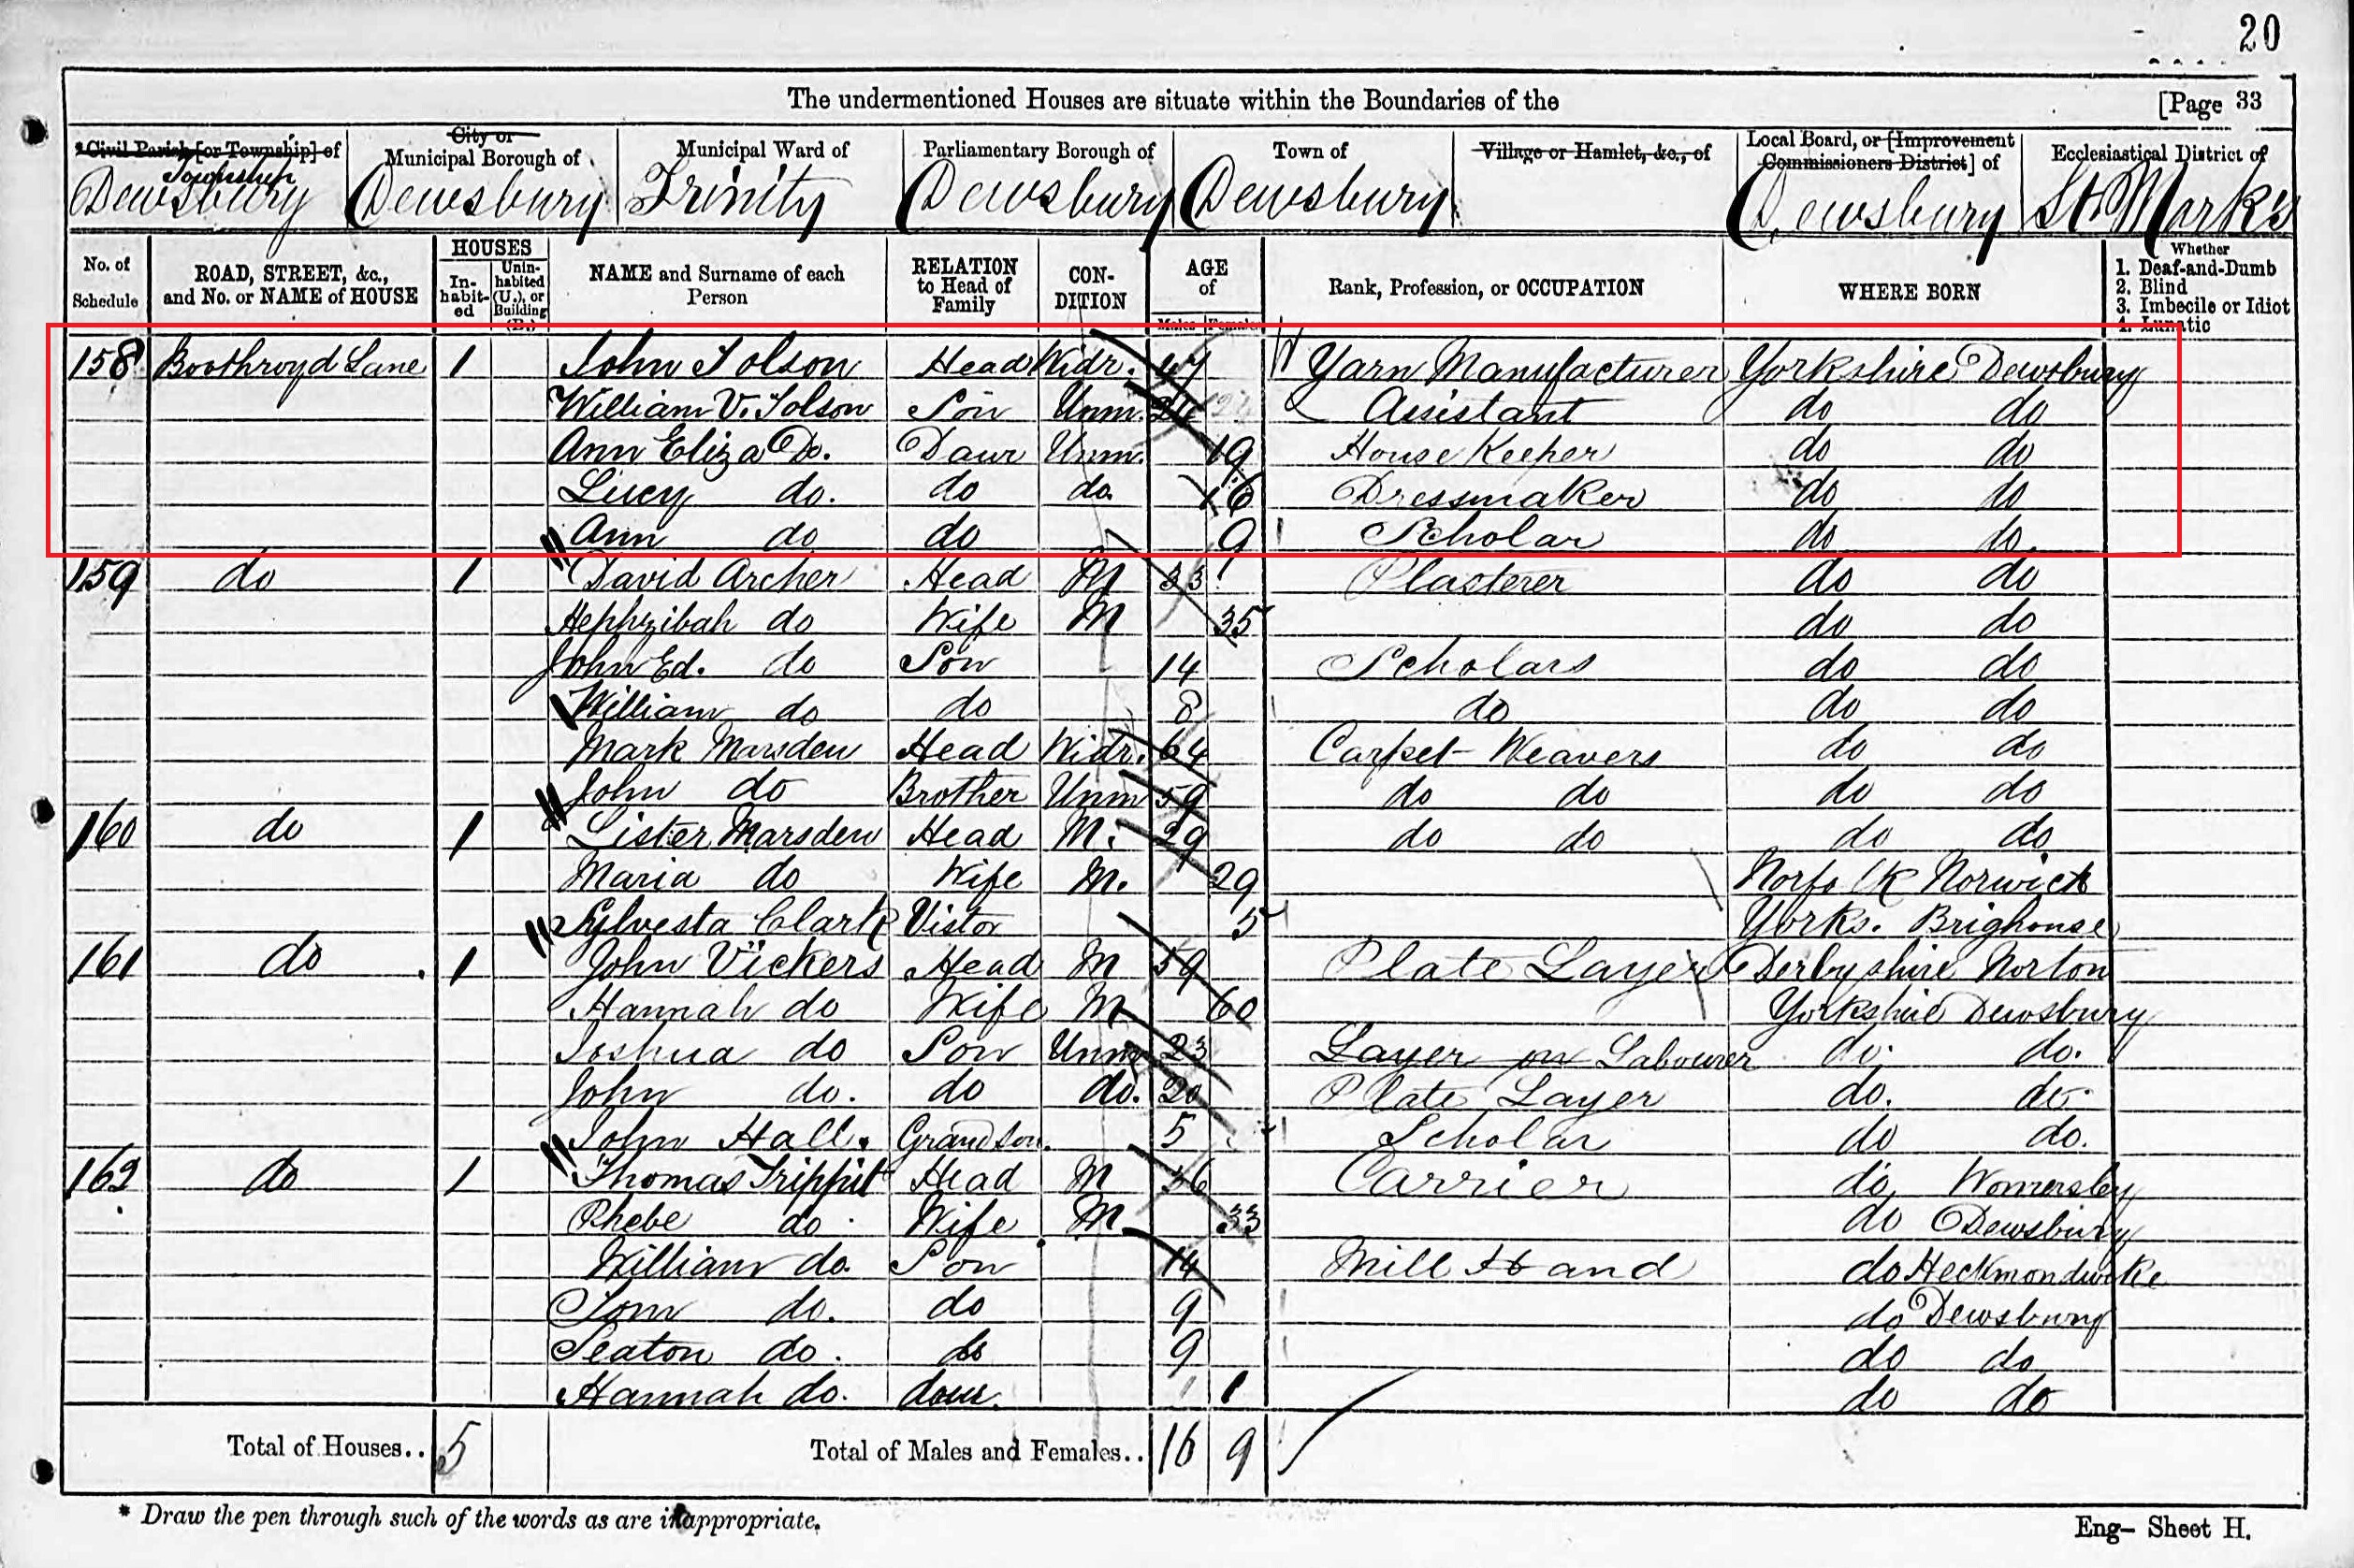 20
The undermentioned Houses are situate within the Boundaries of the
[Page 33
*Civil Parish [or Township] of
Township
Dewsbury
City or Municipal Borough of
Dewsbury
Municipal Ward of
Trinity
Parliamentary Borough of
Dewsbury
Town of
Dewsbury
Village or Hamlet, &c., of
Local Board, or [Improvement Commissioners District] of
Dewsbury
Ecclesiastical District of
St. Mark's
No. of Schedule
ROAD, STREET, &c., and No. or NAME of HOUSE
HOUSES
In-habit-ed
Unin-habited (U.), or Building (B.)
NAME and Surname of each Person
RELATION to Head of Family
CON-DITION
AGE of
Males
Females
Rank, Profession, or OCCUPATION
WHERE BORN
Whether
1. Deaf-and-Dumb
2. Blind
3. Imbecile or Idiot
4. Lunatic
158 Boothroyd Lane 1 John Tolson Head Widr. 47 Yarn Manufacturer Yorkshire Dewsbury
William V. Tolson Son Unm. Assistant do do
Ann Eliza Do. Daur Unm. 19 House Keeper do do
Lucy do. do do. 16 Dressmaker do do
Ann do do 9 Scholar do do.
159 do 1 David Archer Head M 33 Plasterer do do
Hephzibah do Wife M 35 do do
John Ed. do Son 14 Scholars do do
William do do 8 do do do
Mark Marsden Head Widr. 64 Carpet Weavers do do
John do Brother Unm 59 do do do do
160 do 1 Lister Marsden Head M. 29 do do do do
Maria do Wife M. 29 Norfolk Norwich
Sylvesta Clark Vistor 5 Yorks. Brighouse
161 do 1 John Vickers Head M 59 Plate Layer Derbyshire Norton
Hannah do Wife M 60 Yorkshire Dewsbury
Joshua do Son Unm 23 Layer on Labourer do. do.
John do. do do. 20 Plate Layer do. do.
John Hall. Grandson. 5 Scholar do do.
162 do 1 Thomas Trippit Head M 36 Carrier do Womersley
Phebe do Wife M 33 do Dewsbury
William do. Son 14 Mill Hand do Heckmondwike
Tom do. do 9 do Dewsbury
Seaton do. do 9 do do
Hannah do. daur. 1 do do
Total of Houses.. 5
Total of Males and Females.. 16 9
* Draw the pen through such of the words as are inappropriate.
Eng- Sheet H.